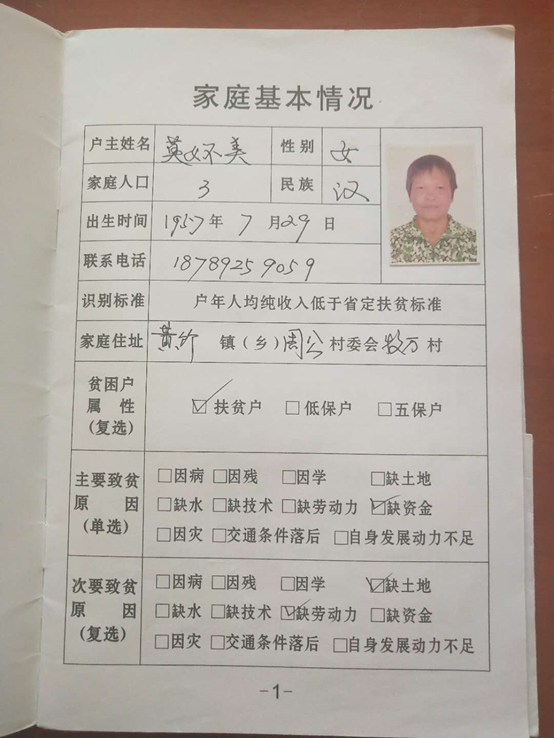 家庭基本情况
户主姓名 莫女不美 性别 女
家庭人口 3 民族 汉
出生时间 1957年 7 月29日
联系电话 18789259059
识别标准 户年人均纯收入低于省定扶贫标准
家庭住址 黄竹 镇(乡)周公村委会 村
贫困户
属性
(复选)
☑扶贫户 □低保户 □五保户
主要致贫
原因
(单选)
□因病 □因残 □因学 □缺土地
□缺水 □缺技术 □缺劳动力 ☑缺资金
□因灾 □交通条件落后 □自身发展动力不足
次要致贫
原因
(复选)
□因病 □因残 □因学 ☑缺土地
□缺水 □缺技术 ☑缺劳动力 □缺资金
□因灾 □交通条件落后 □自身发展动力不足
-1-